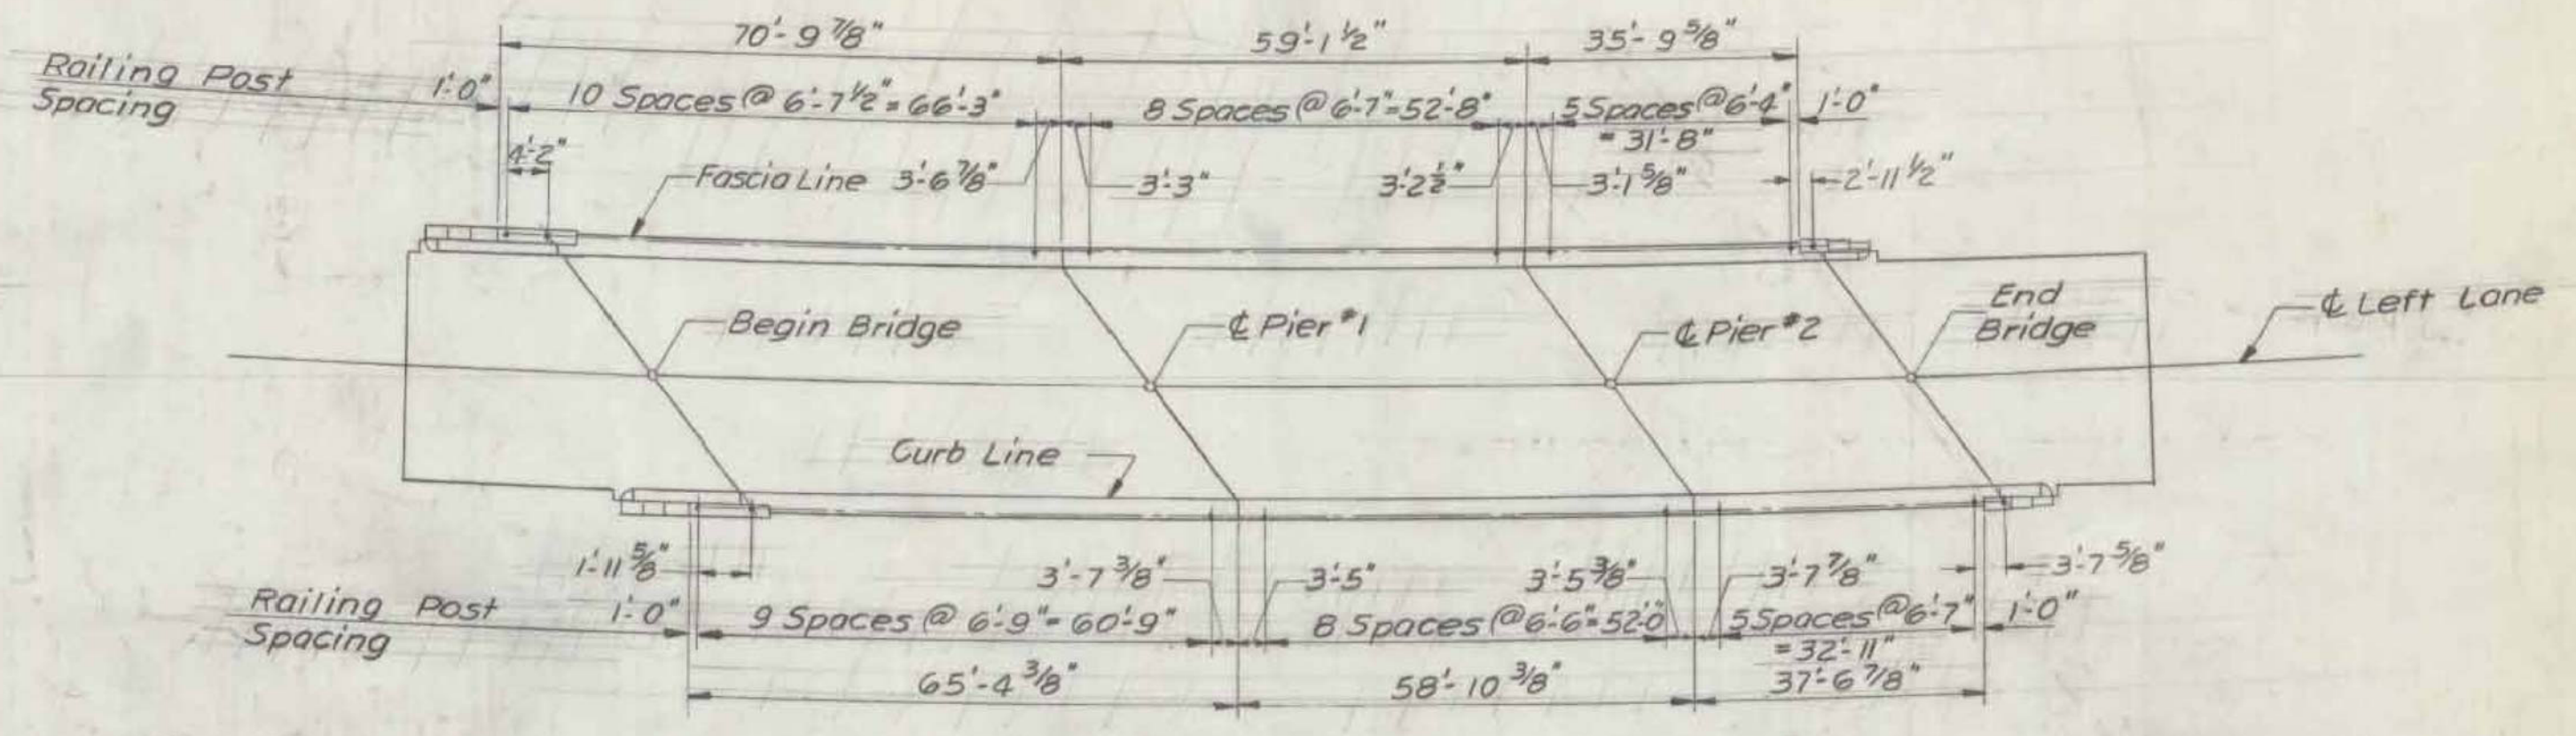 70'-9 7/8"
59'-1 1/2"
35'-9 5/8"
Railing Post
Spacing
1'-0"
10 Spaces @ 6'-7 1/2" = 66'-3"
8 Spaces @ 6'-7" = 52'-8"
5 Spaces @ 6'-4"
= 31'-8"
1'-0"
4'-2"
Fascia Line
3'-6 7/8"
3'-3"
3'-2 1/2"
3'-1 5/8"
2'-11 1/2"
Begin Bridge
℄ Pier #1
℄ Pier #2
End
Bridge
℄ Left Lane
Curb Line
1'-11 5/8"
3'-7 3/8"
3'-5"
3'-5 3/8"
3'-7 7/8"
3'-7 5/8"
Railing Post
Spacing
1'-0"
9 Spaces @ 6'-9" = 60'-9"
8 Spaces @ 6'-6" = 52'-0"
5 Spaces @ 6'-7"
= 32'-11"
1'-0"
65'-4 3/8"
58'-10 3/8"
37'-6 7/8"